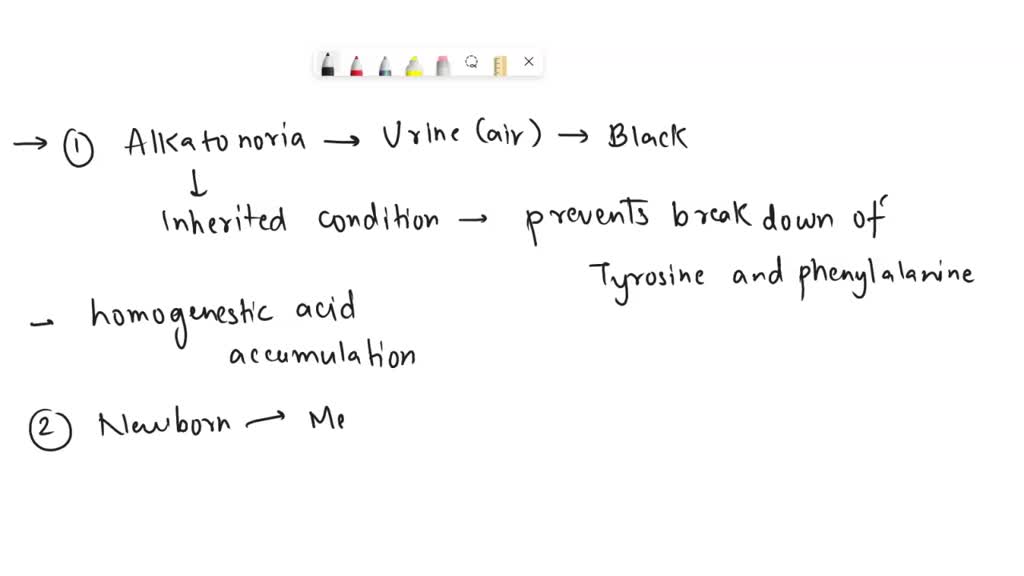 → ① Alkatonoria → Urine (air) → Black
↓
Inherited condition → prevents break down of
Tyrosine and phenylalanine
- homogenestic acid
accumulation
② Newborn → Me